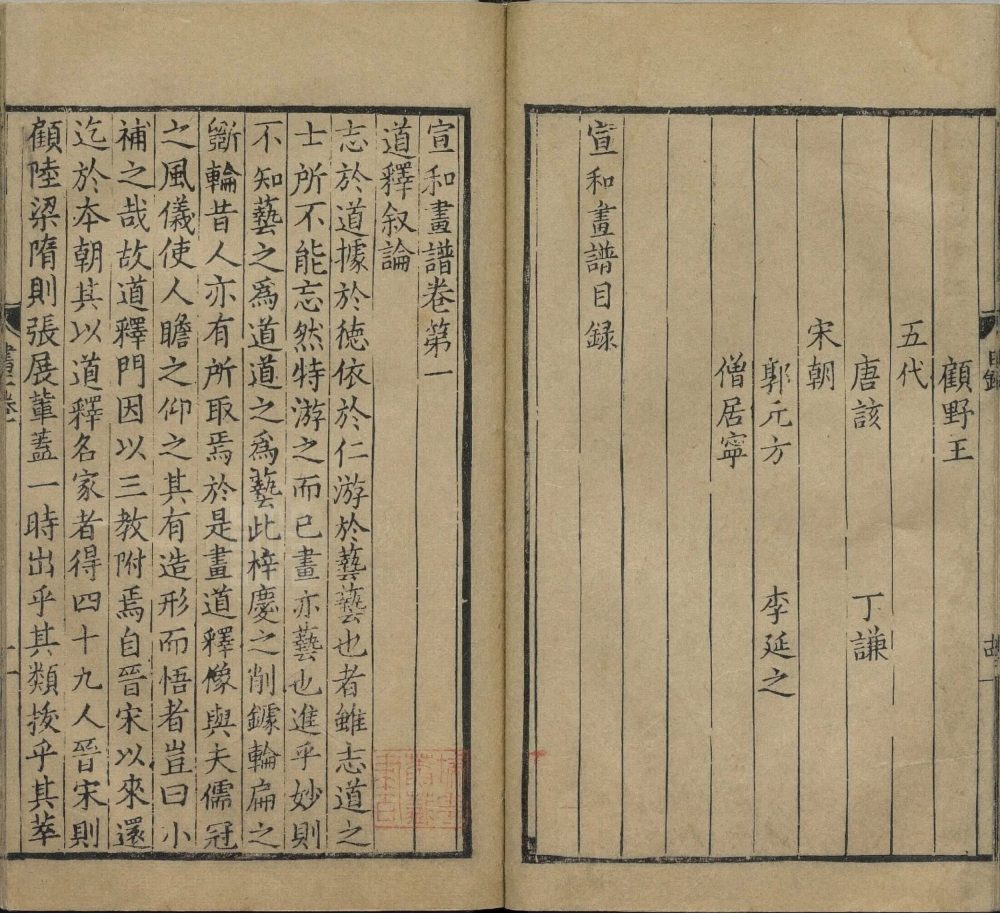 顧野王
五代
唐該 丁謙
宋朝
郭元方 李延之
僧居寧
宣和畫譜目録
宣和畫譜卷第一
道釋叙論
志於道據於德依於仁游於藝藝也者雖志道之
士所不能忘然特游之而已畫亦藝也進乎妙則
不知藝之爲道道之爲藝此梓慶之削鐻輪扁之
斵輪昔人亦有所取焉於是畫道釋像與夫儒冠
之風儀使人瞻之仰之其有造形而悟者豈曰小
補之哉故道釋門因以三教附焉自晉宋以來還
迄於本朝其以道釋名家者得四十九人晉宋則
顧陸梁隋則張展輩蓋一時出乎其類拔乎其萃